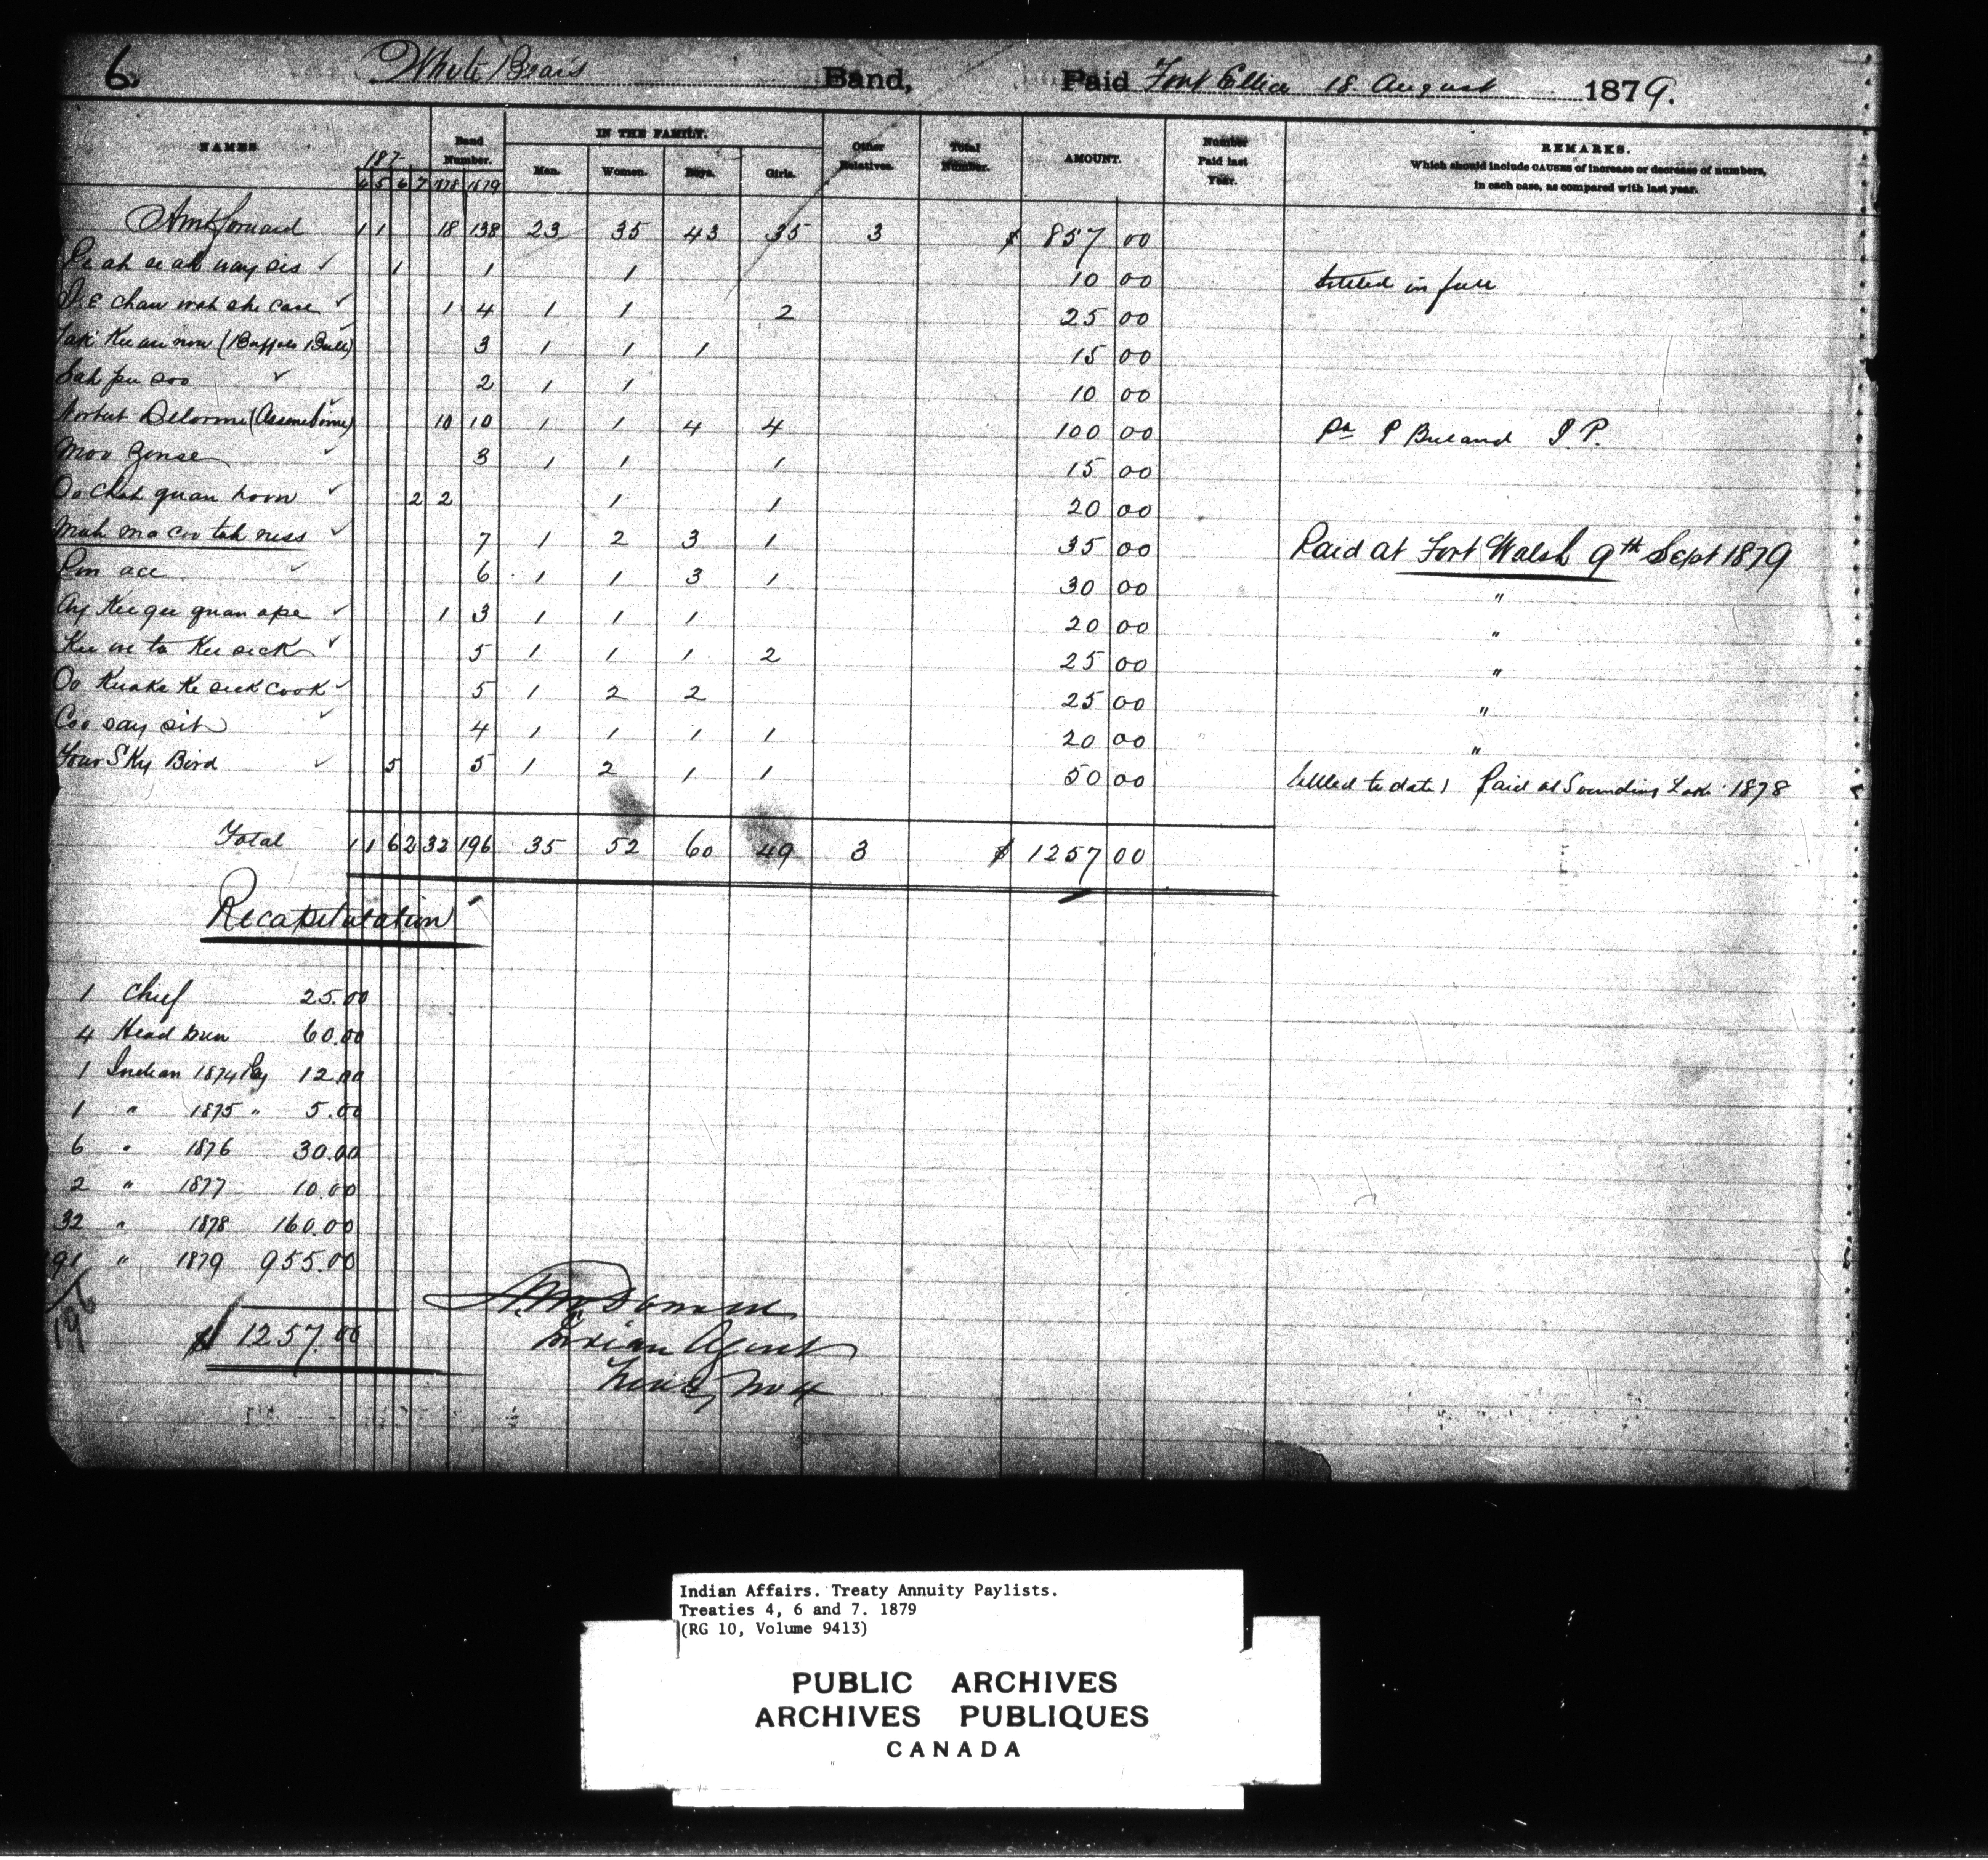 6. White Bears Band, Paid Fort Ellice 18 August 1879.
NAMES 187- Band Number. IN THE FAMILY. Other Relatives. Total Number. AMOUNT. Number Paid last Year. REMARKS.
Which should include CAUSES of increase or decrease of numbers,
in each case, as compared with last year.
4 5 6 7 1878 1879 Men. Women. Boys. Girls.
Amt forward 1 1 18 138 23 35 43 35 3 $ 857 00
1 1 1 10 00 Settled in full
1 4 1 1 2 25 00
(Buffalo Bull) 3 1 1 1 15 00
Sah pu soo 2 1 1 10 00
Norbert Delorme (Assineboine) 10 10 1 1 4 4 100 00 pr P Breland J P.
Moo Zonse 3 1 1 1 15 00
Oo Chah quan hoow 2 2 1 1 20 00
Mah ma coo tah ness 7 1 2 3 1 35 00 Paid at Fort Walsh 9th Sept 1879
6 1 1 3 1 30 00 "
Ay Kee gee quan ape 1 3 1 1 1 20 00 "
Kee we ta Kee sick 5 1 1 1 2 25 00 "
Oo Kuake Ke seek cook 5 1 2 2 25 00 "
Coo say sit 4 1 1 1 1 20 00 "
Four Sky Bird 5 5 1 2 1 1 50 00 Settled to date) Paid at Sounding Lake 1878
Total 1 1 6 2 32 196 35 52 60 49 3 $ 1257 00
Recapitulation
1 Chief 25.00
4 Head men 60.00
1 Indian 1874 Pay 12.00
1 " 1875 " 5.00
6 " 1876 30.00
2 " 1877 10.00
32 " 1878 160.00
191 " 1879 955.00
196
$ 1257.00
A McDonald
Indian Agent
Treaty No 4
Indian Affairs. Treaty Annuity Paylists.
Treaties 4, 6 and 7. 1879
(RG 10, Volume 9413)
PUBLIC ARCHIVES
ARCHIVES PUBLIQUES
CANADA